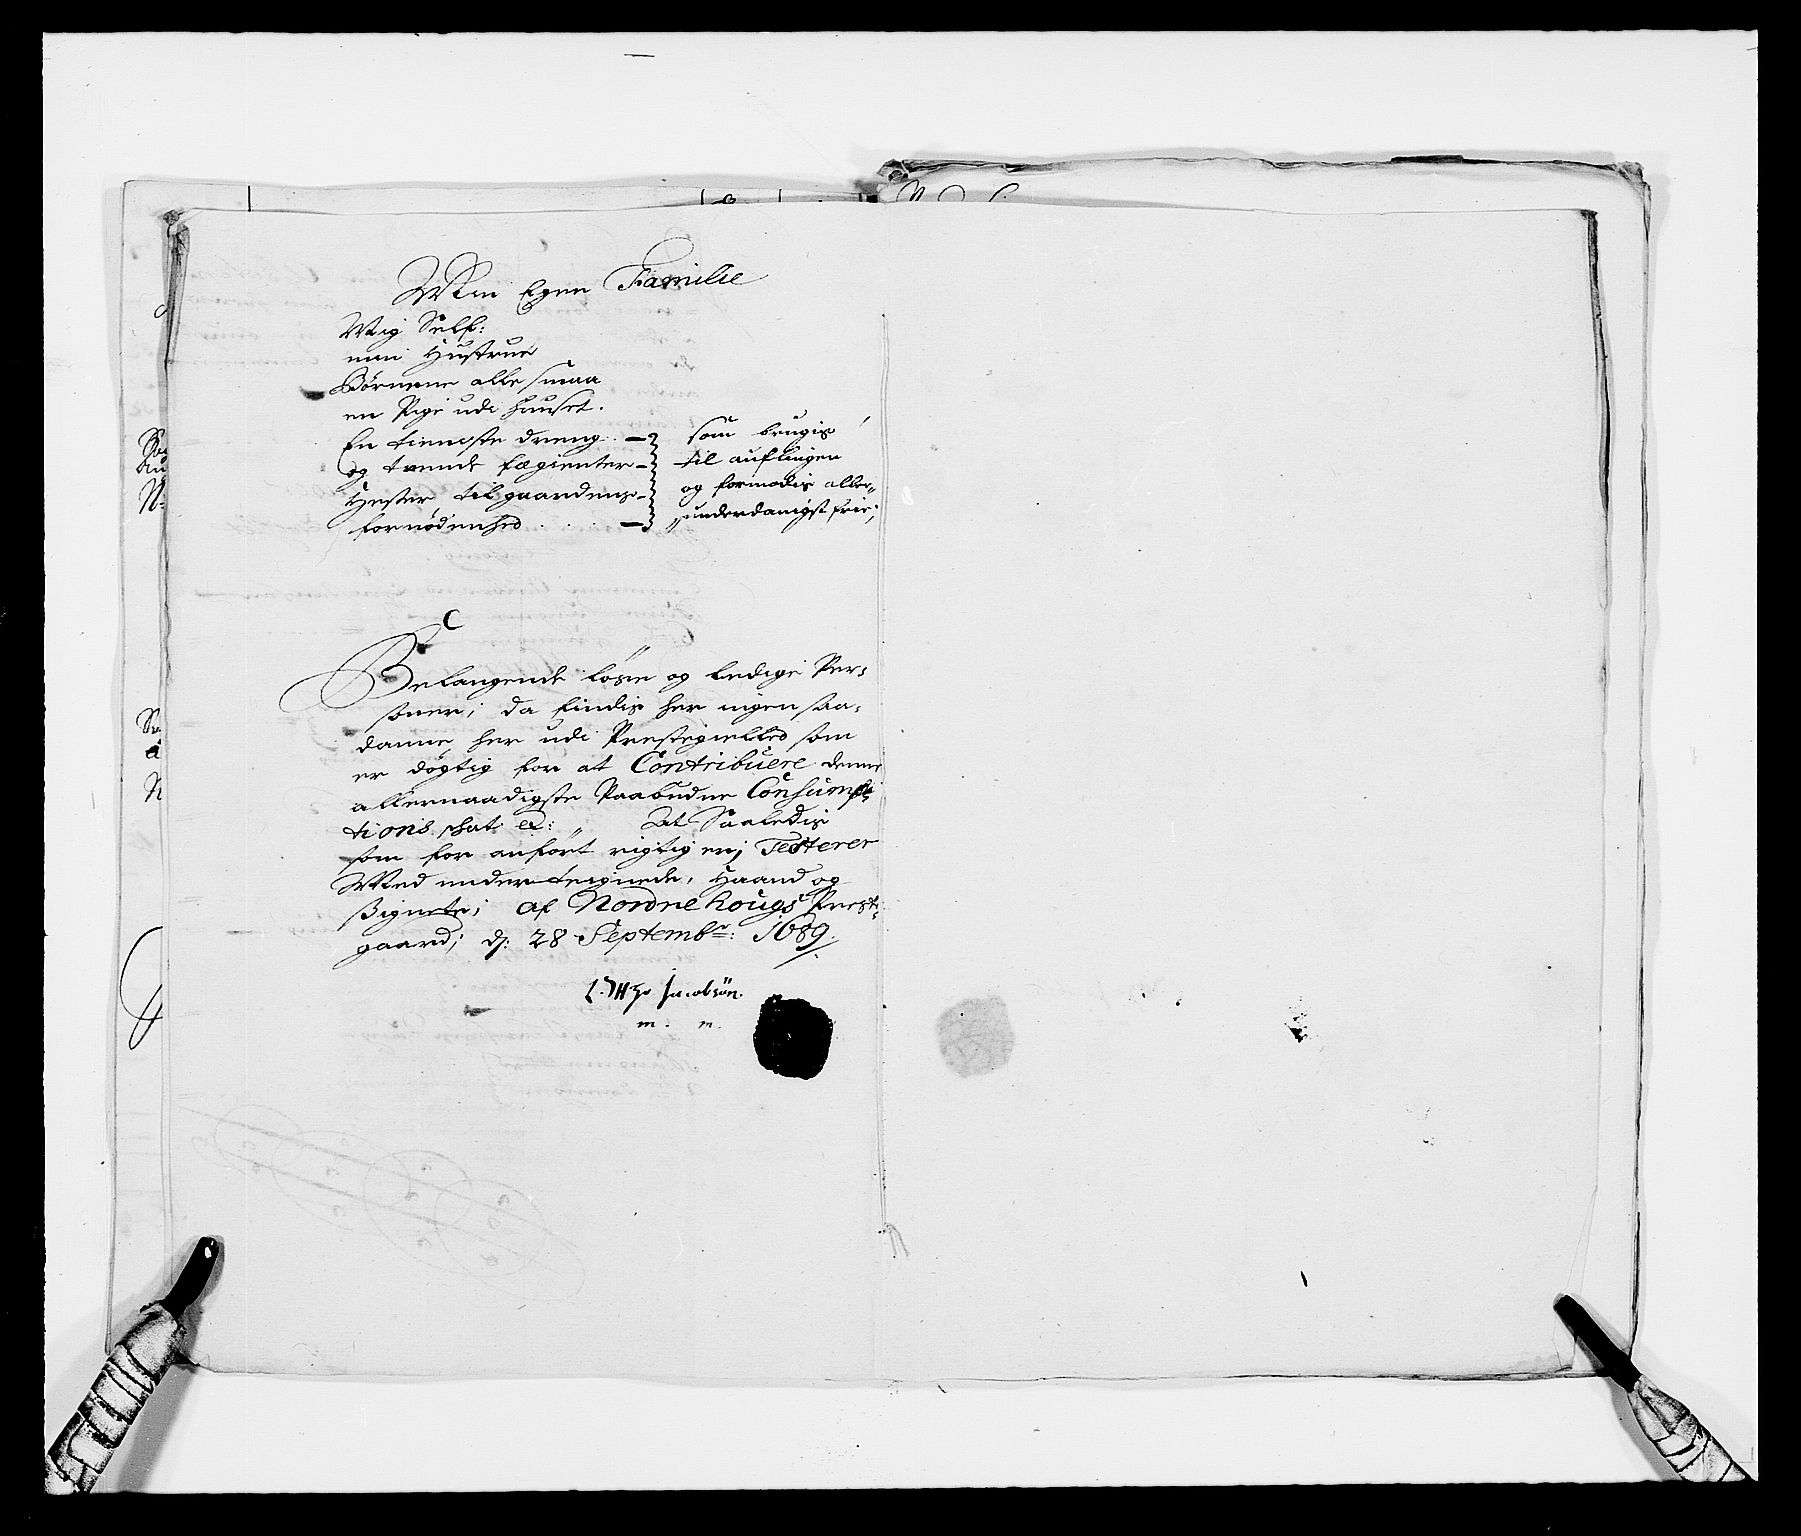 Min Egen Familie
Mig Self:
min Hustrue
Børnene alle smaa
en Pige udi huuset.
En tieneste dreng
og trende
Hester til gaardens
fornødenhed . . .
som brugis
til auflingen
og formodis aller„
„underdanigst frie;
Belangende løse og ledige Per:
soner; da findis her ingen saa:
danne, her udi Prestegielled som
er døgtig for at Contribuere denne
allernaadigste Paabudne Consump:
tions skat &: At Saaledis
som for anført rigtig er; Testerer
Med underteignede, Haand og
Signete; af Nordrehougs Prest:
gaard; d: 28 Septembr: 1689.
Jacobsøn.
m. n.